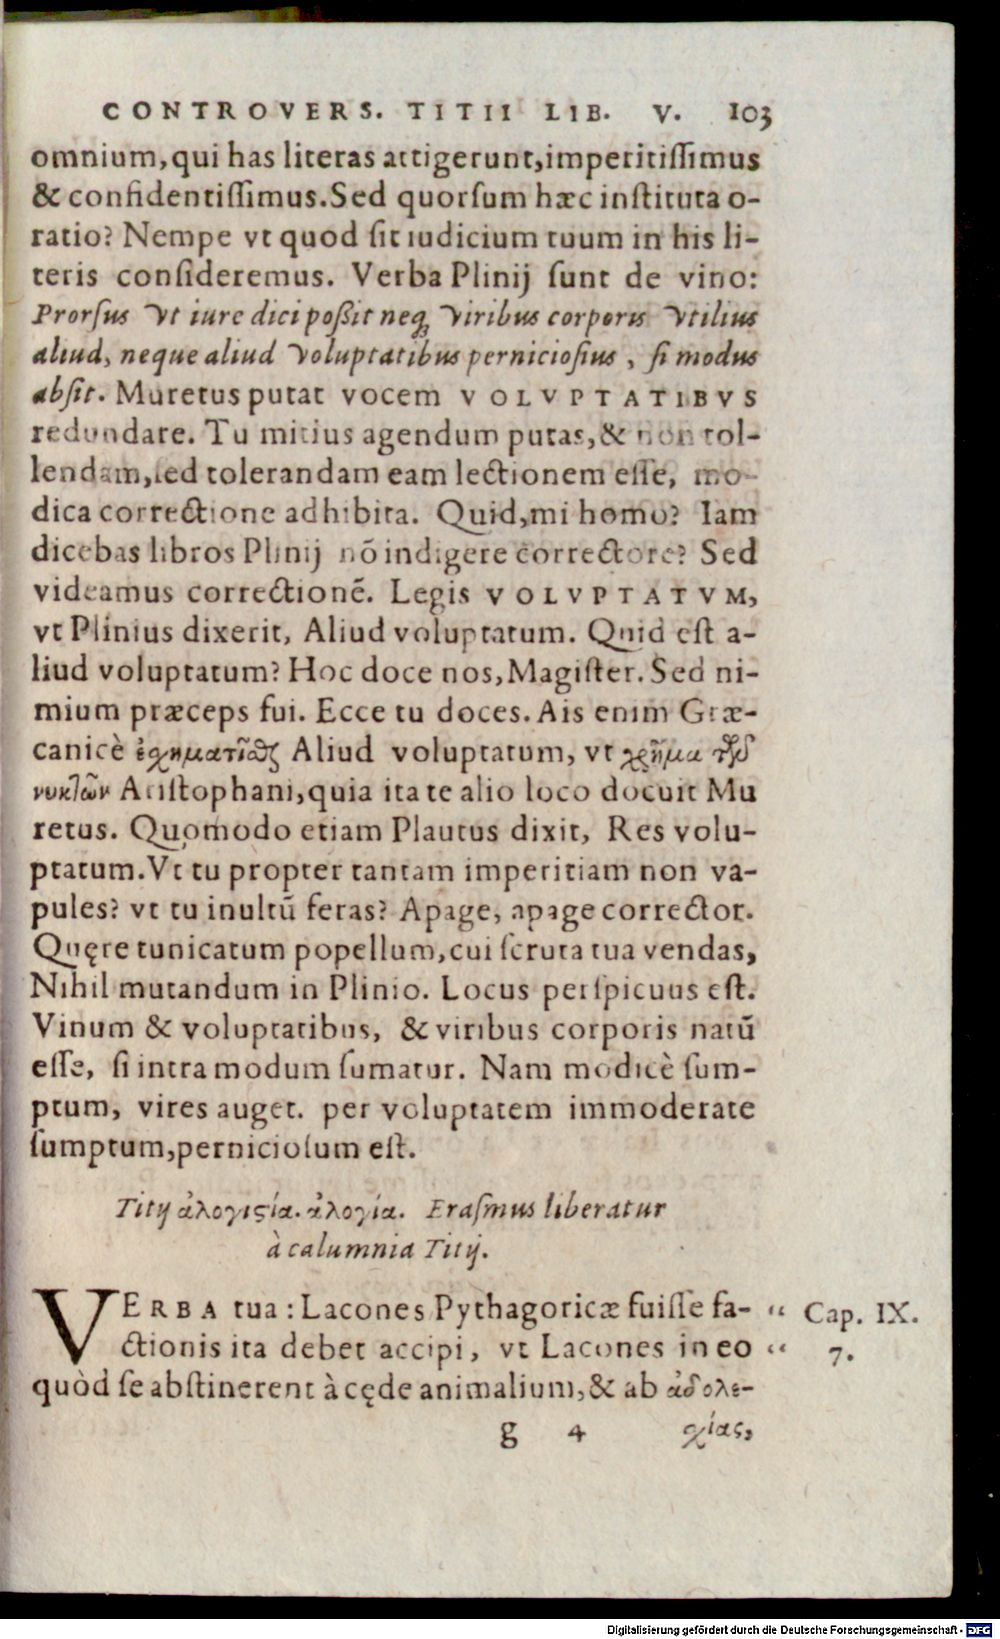 CONTROVERS. TITII LIB. V. 103
omnium, qui has literas attigerunt, imperitiſſimus
& confidentiſſimus. Sed quorſum hæc inſtituta o-
ratio? Nempe vt quod ſit iudicium tuum in his li-
teris conſideremus. Verba Plinij ſunt de vino:
Prorſus vt iure dici poßit neq; viribus corporis vtilius
aliud, neque aliud voluptatibus pernicioſius, ſi modus
abſit. Muretus putat vocem VOLVPTATIBVS
redundare. Tu mitius agendum putas, & non tol-
lendam, ſed tolerandam eam lectionem eſſe, mo-
dica correctione adhibita. Quid, mi homo? Iam
dicebas libros Plinij nō indigere correctore? Sed
videamus correctionē. Legis VOLVPTATVM,
vt Plinius dixerit, Aliud voluptatum. Quid eſt a-
liud voluptatum? Hoc doce nos, Magiſter. Sed ni-
mium præceps fui. Ecce tu doces. Ais enim Græ-
canicè ἐχηματῖσθαι Aliud voluptatum, vt χρῆμα τῶν
νυκτῶν Ariſtophani, quia ita te alio loco docuit Mu
retus. Quomodo etiam Plautus dixit, Res volu-
ptatum. Vt tu propter tantam imperitiam non va-
pules? vt tu inultū feras? Apage, apage corrector.
Quęre tunicatum popellum, cui ſcruta tua vendas,
Nihil mutandum in Plinio. Locus perſpicuus eſt.
Vinum & voluptatibus, & viribus corporis natū
eſſe, ſi intra modum ſumatur. Nam modicè ſum-
ptum, vires auget. per voluptatem immoderate
ſumptum, pernicioſum eſt.
Titij ἀλογιϛία. ἀλογία. Eraſmus liberatur
à calumnia Titij.
VERBA tua: Lacones Pythagoricæ fuiſſe fa- “ Cap. IX.
ctionis ita debet accipi, vt Lacones in eo “ 7.
quòd ſe abſtinerent à cęde animalium, & ab ἀδολε-
g 4 χίας,
Digitalisierung gefördert durch die Deutsche Forschungsgemeinschaft - DFG